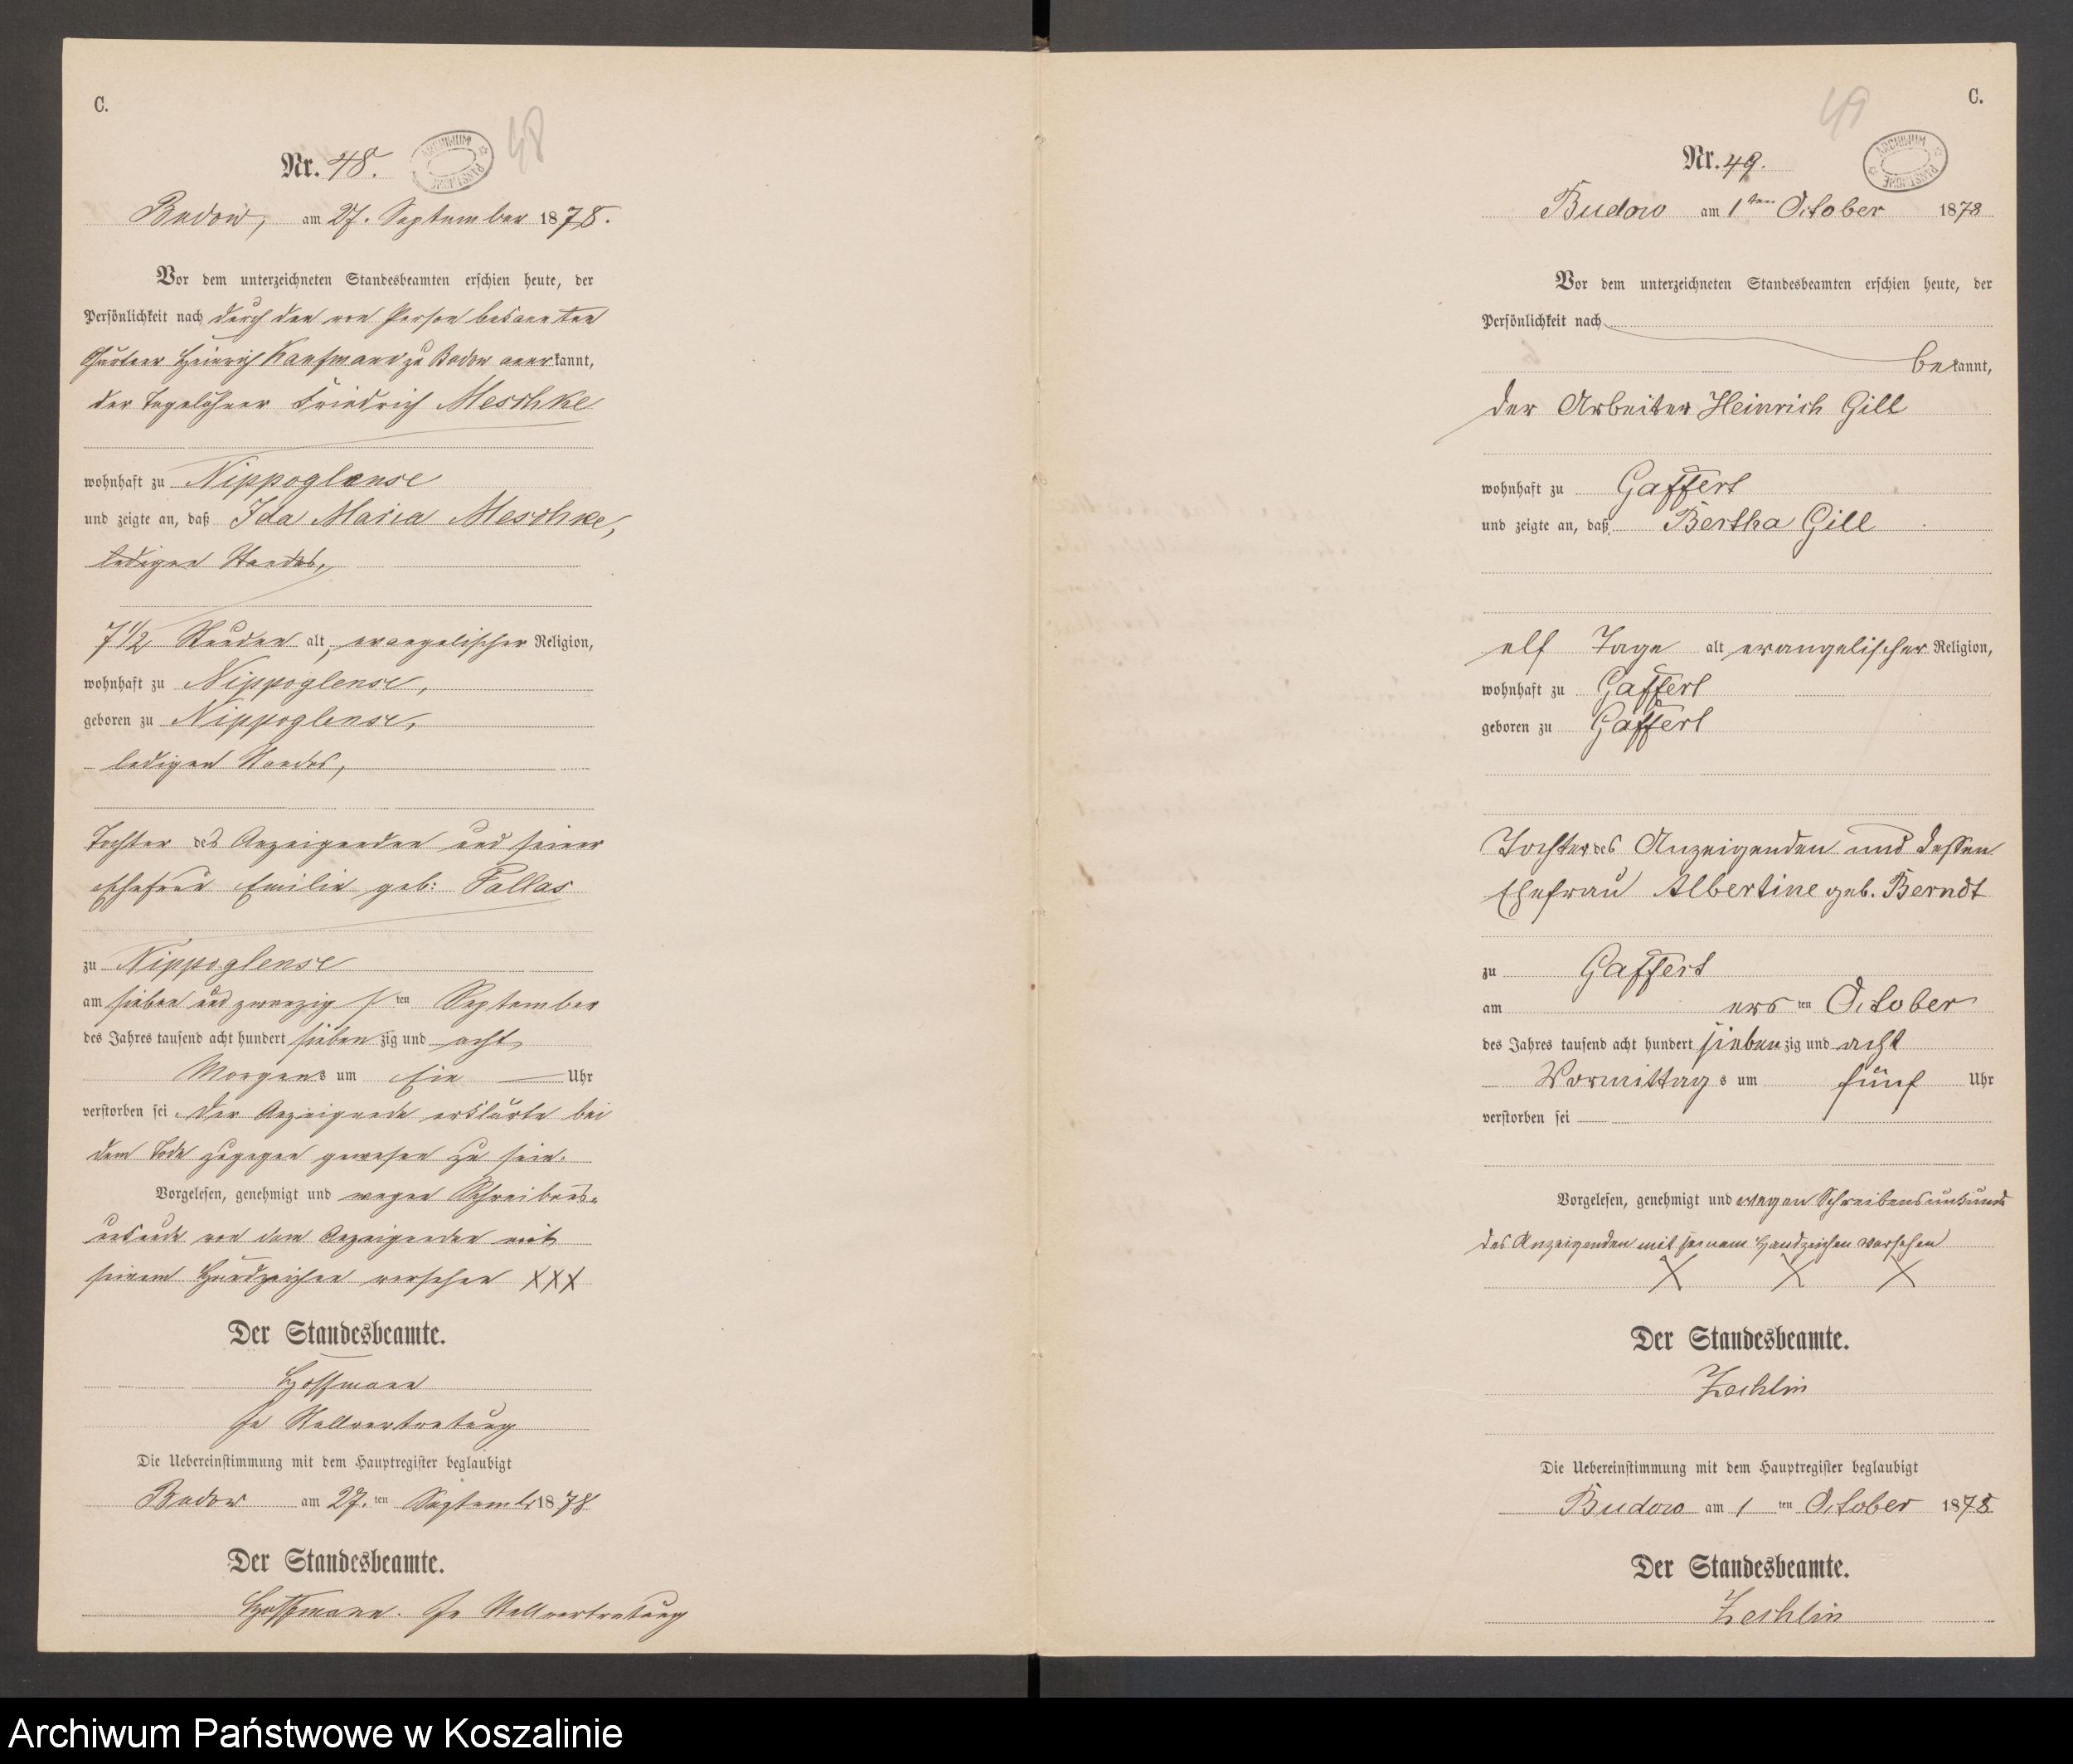 C.
48
Nr. 48.
ARCHIWUM PAŃSTWOWE
Budow, am 27. September 1878.
Vor dem unterzeichneten Standesbeamten erschien heute, der
Persönlichkeit nach durch den von Person bekannten
Heinrich Kaufmann zu Budow anerkannt,
der Tagelöhner Friedrich Meschke
wohnhaft zu Nippoglense
und zeigte an, daß Ida Maria Meschke,
ledigen Standes,
7 1/2 Stunden alt, evangelischer Religion,
wohnhaft zu Nippoglense,
geboren zu Nippoglense,
ledigen Standes,
Tochter des Anzeigenden und seiner
Ehefrau Emilie geb: Fallas
zu Nippoglense
am sieben und zwanzigsten September
des Jahres tausend acht hundert siebenzig und acht
Morgens um Ein Uhr
verstorben sei. Der Anzeigende erklärte bei
dem Tode zugegen gewesen zu sein.
Vorgelesen, genehmigt und wegen Schreibens-
unkunde von dem Anzeigenden mit
seinem Handzeichen versehen XXX
Der Standesbeamte.
Hoffmann
In Stellvertretung
Die Uebereinstimmung mit dem Hauptregister beglaubigt
Budow am 27. ten Septemb 1878
Der Standesbeamte.
Hoffmann. In Stellvertretung
C.
49
Nr. 49.
ARCHIWUM PAŃSTWOWE
Budow am 1ten October 1878
Vor dem unterzeichneten Standesbeamten erschien heute, der
Persönlichkeit nach
bekannt,
der Arbeiter Heinrich Gill
wohnhaft zu Gaffert
und zeigte an, daß Bertha Gill
elf Tage alt evangelischer Religion,
wohnhaft zu Gaffert
geboren zu Gaffert
Tochter des Anzeigenden und dessen
Ehefrau Albertine geb. Berndt
zu Gaffert
am ersten October
des Jahres tausend acht hundert siebenzig und acht
Vormittags um fünf Uhr
verstorben sei
Vorgelesen, genehmigt und wegen Schreibensunkunde
des Anzeigenden mit seinem Handzeichen versehen
X X X
Der Standesbeamte.
Zechlin
Die Uebereinstimmung mit dem Hauptregister beglaubigt
Budow am 1 ten October 1878
Der Standesbeamte.
Zechlin
Archiwum Państwowe w Koszalinie